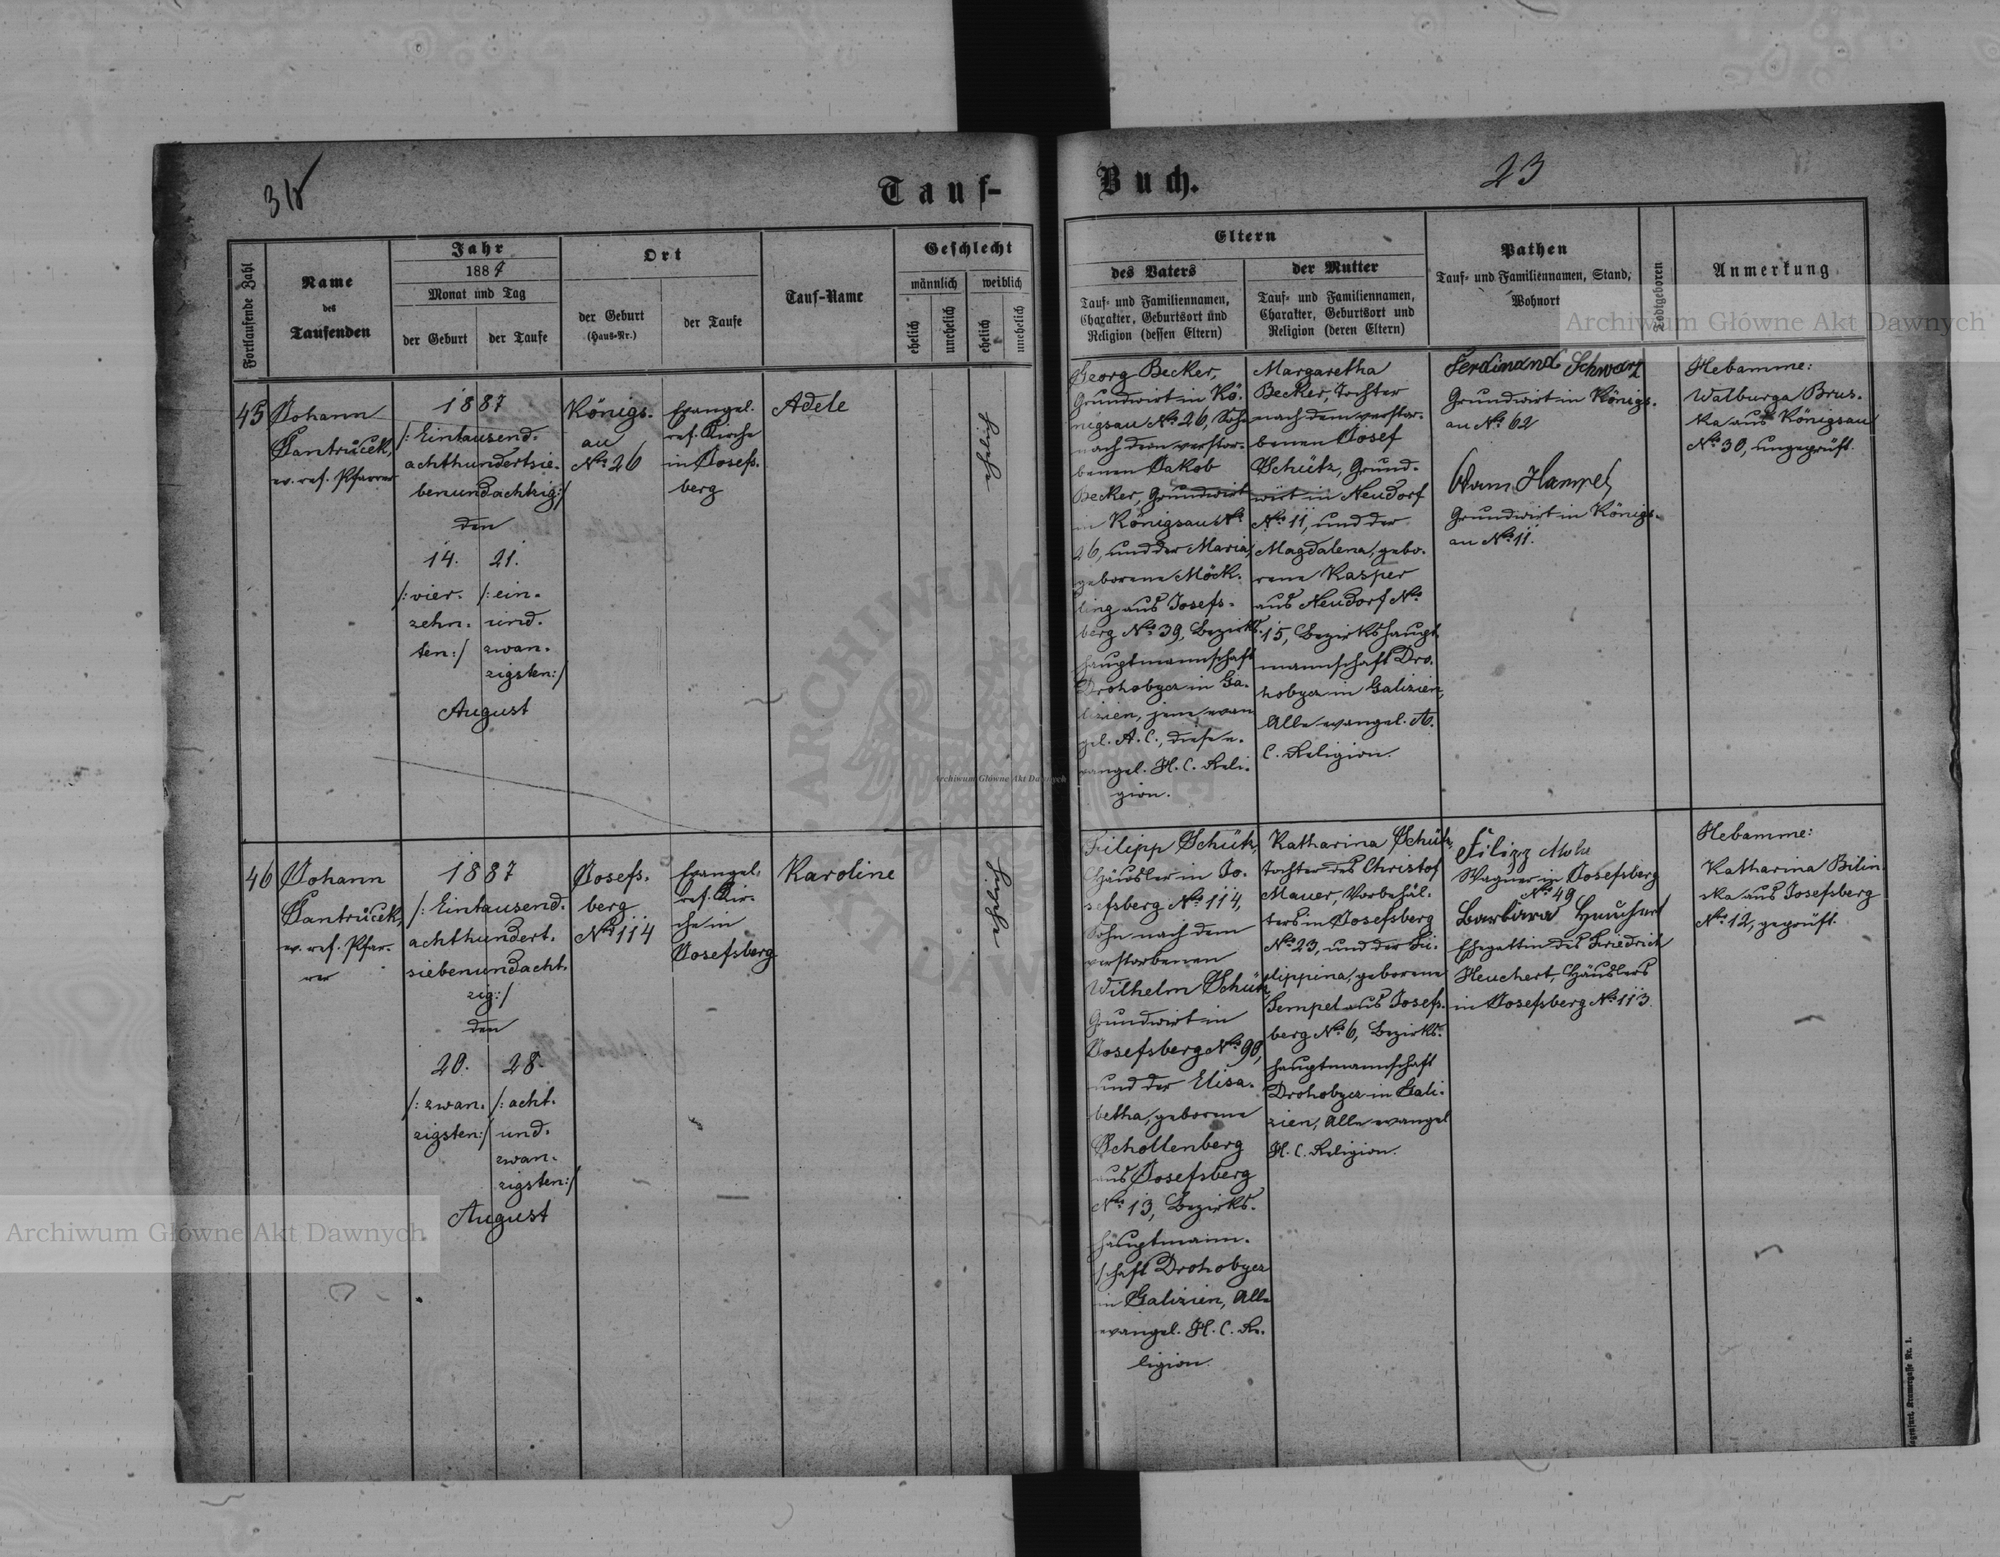 Tauf-
Buch.
23
Fortlaufende Zahl
Name
des
Taufenden
Jahr
1887
Monat und Tag
der Geburt
der Taufe
Ort
der Geburt
(Haus-Nr.)
der Taufe
Tauf-Name
Geschlecht
männlich
weiblich
ehelich
unehelich
ehelich
unehelich
Eltern
des Vaters
Tauf- und Familiennamen,
Charakter, Geburtsort und
Religion (dessen Eltern)
der Mutter
Tauf- und Familiennamen,
Charakter, Geburtsort und
Religion (deren Eltern)
Pathen
Tauf- und Familiennamen, Stand,
Wohnort
Todtgeboren
Anmerkung
45
Johann
Jantrůcek,
ev. ref. Pfarrer
1887
/: Eintausend-
achthundertsie-
benundachtzig :/
den
14.
/: vier-
zehn-
ten :/
21.
/: ein-
und-
zwan-
zigsten :/
August
Königs-
au
No. 26
Evangel.
ref. Kirche
in Josefs-
berg
Adele
ehelich
Georg Becker,
Grundwirt in Kö-
nigsau No. 26, Sohn
nach dem verstor-
benen Jakob
Becker, Grundwirt
in Königsau No.
26, und der Maria,
geborene Möck-
ling aus Josefs-
berg No. 39, Bezirks-
hauptmannschaft
Drohobycz in Ga-
lizien, jene evan
gel. A. C., diese e-
vangel. H. C. Reli-
gion.
Margaretha
Becker, Tochter
nach dem verstor-
benen Josef
Schütz, Grund-
wirt in Neudorf
No. 11, und der
Magdalena, gebo-
rene Kasper
aus Neudorf No.
15, Bezirkshaupt-
mannschaft Dro-
hobycz in Galizien,
Alle evangel. A.
C. Religion.
Ferdinand Schwarz
Grundwirt in Königs-
au No. 62
Adam Hampel
Grundwirt in Königs-
au No. 11.
Hebamme:
Walburga Brus-
ka aus Königsau
No. 30, ungeprüft.
46
Johann
Jantrůcek,
ev. ref. Pfar-
rer
1887
/: Eintausend-
achthundert-
siebenundacht-
zig :/
den
20.
/: zwan-
zigsten :/
28.
/: acht-
und-
zwan-
zigsten :/
August
Josefs-
berg
No. 114
Evangel.
ref. Kir-
che in
Josefsberg
Karoline
ehelich
Filipp Schütz,
Häusler in Jo-
sefsberg No. 114,
Sohn nach dem
verstorbenen
Wilhelm Schütz,
Grundwirt in
Josefsberg No. 90,
und der Elisa-
betha, geborene
Schollenberg
aus Josefsberg
No. 13, Bezirks-
hauptmann-
schaft Drohobycz
in Galizien, Alle
evangel. H. C. Re-
ligion.
Katharina Schütz,
Tochter des Christof
Mauer, Vorbehäl-
ters in Josefsberg
No. 23, und der Fi-
lippina, geborene
Tempel aus Josefs-
berg No. 6, Bezirks-
hauptmannschaft
Drohobycz in Gali-
zien, Alle evangel
H. C. Religion.
Filipp
Wagner in Josefsberg
No. 49
Barbara Heuchert
Ehegattin des Friedrich
Heuchert, Häuslers
in Josefsberg No. 113.
Hebamme:
Katharina Bilin
ska aus Josefsberg
No. 12, geprüft.
Archiwum Główne Akt Dawnych
Archiwum Główne Akt Dawnych
Archiwum Główne Akt Dawnych